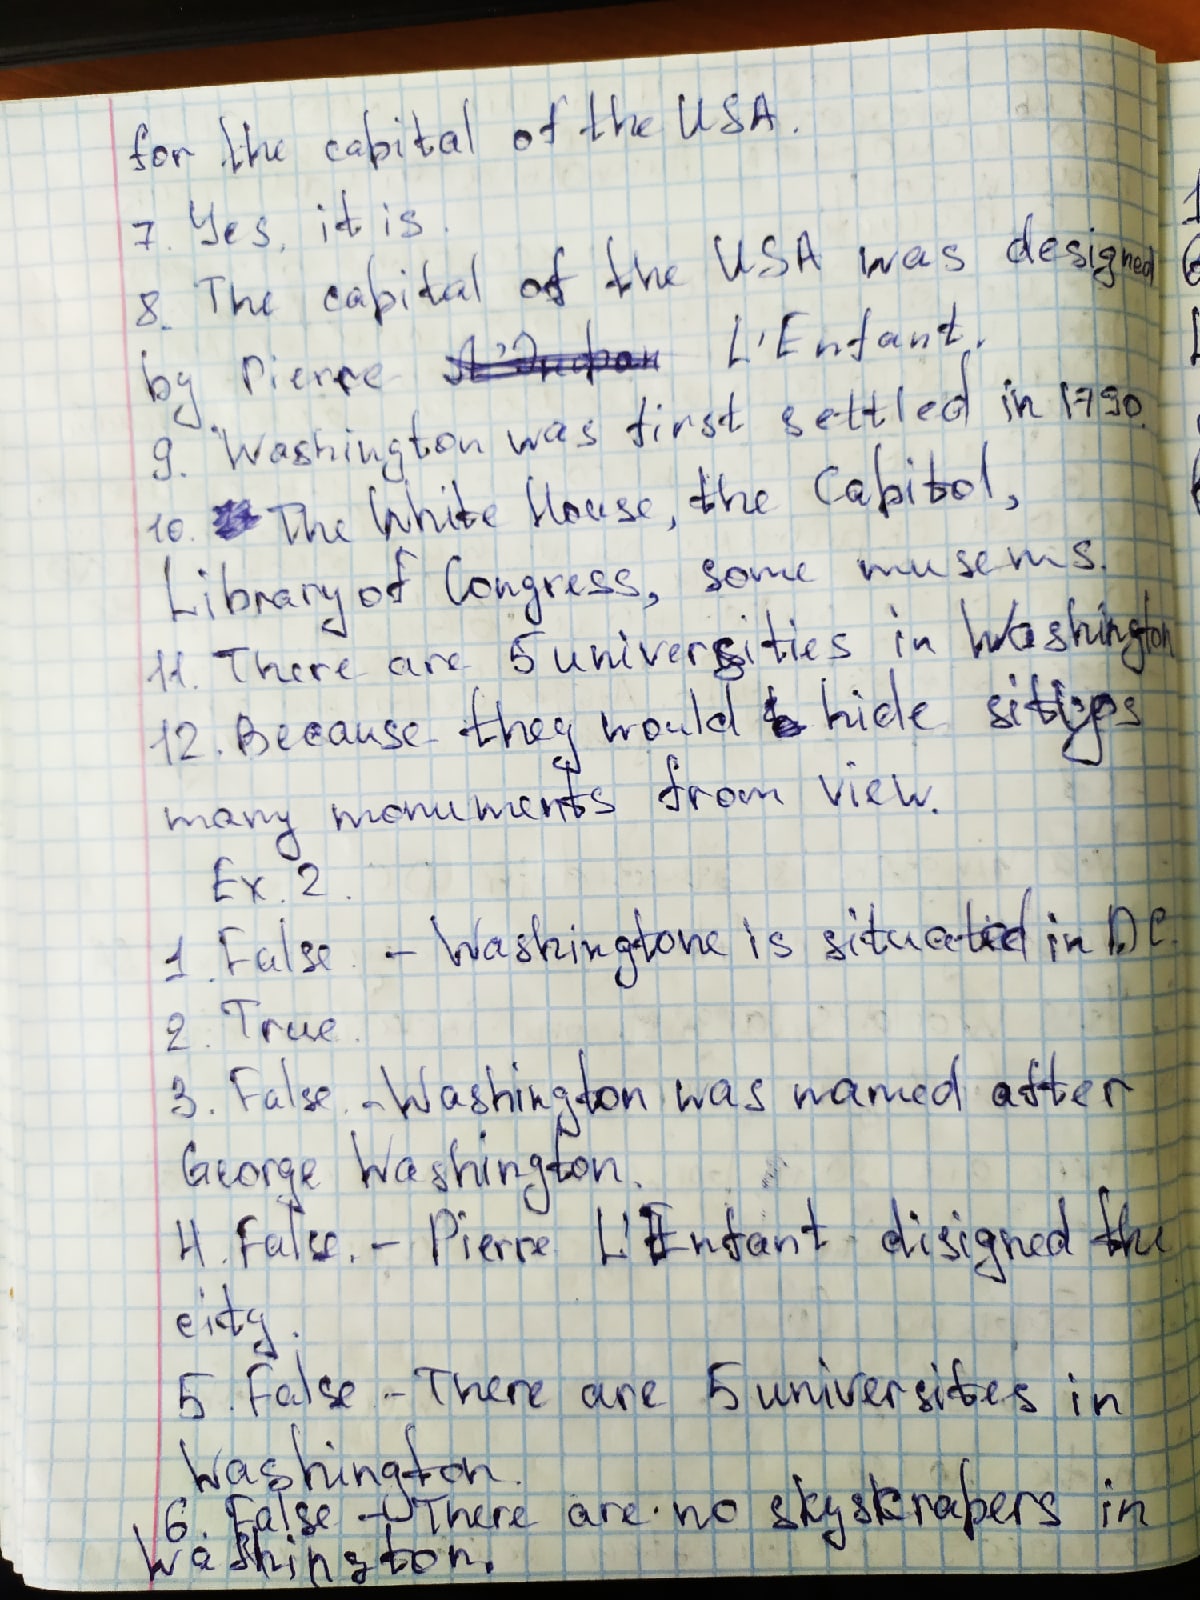 for the capital of the USA.
7. Yes, it is.
8. The capital of the USA was designed
by Pierre L'Enfant.
9. Washington was first settled in 1790.
10. The White House, the Capitol,
Library of Congress, some musems.
11. There are 5 universities in Washington
12. Because they would hide
many monuments from view.
Ex. 2.
1. False - Washingtone is situated in DC.
2. True.
3. False. - Washington was named after
George Washington.
4. False. - Pierre L'Enfant disigned the
city.
5. False - There are 5 universites in
Washington.
6. False - There are no skyskrapers in
Washington.